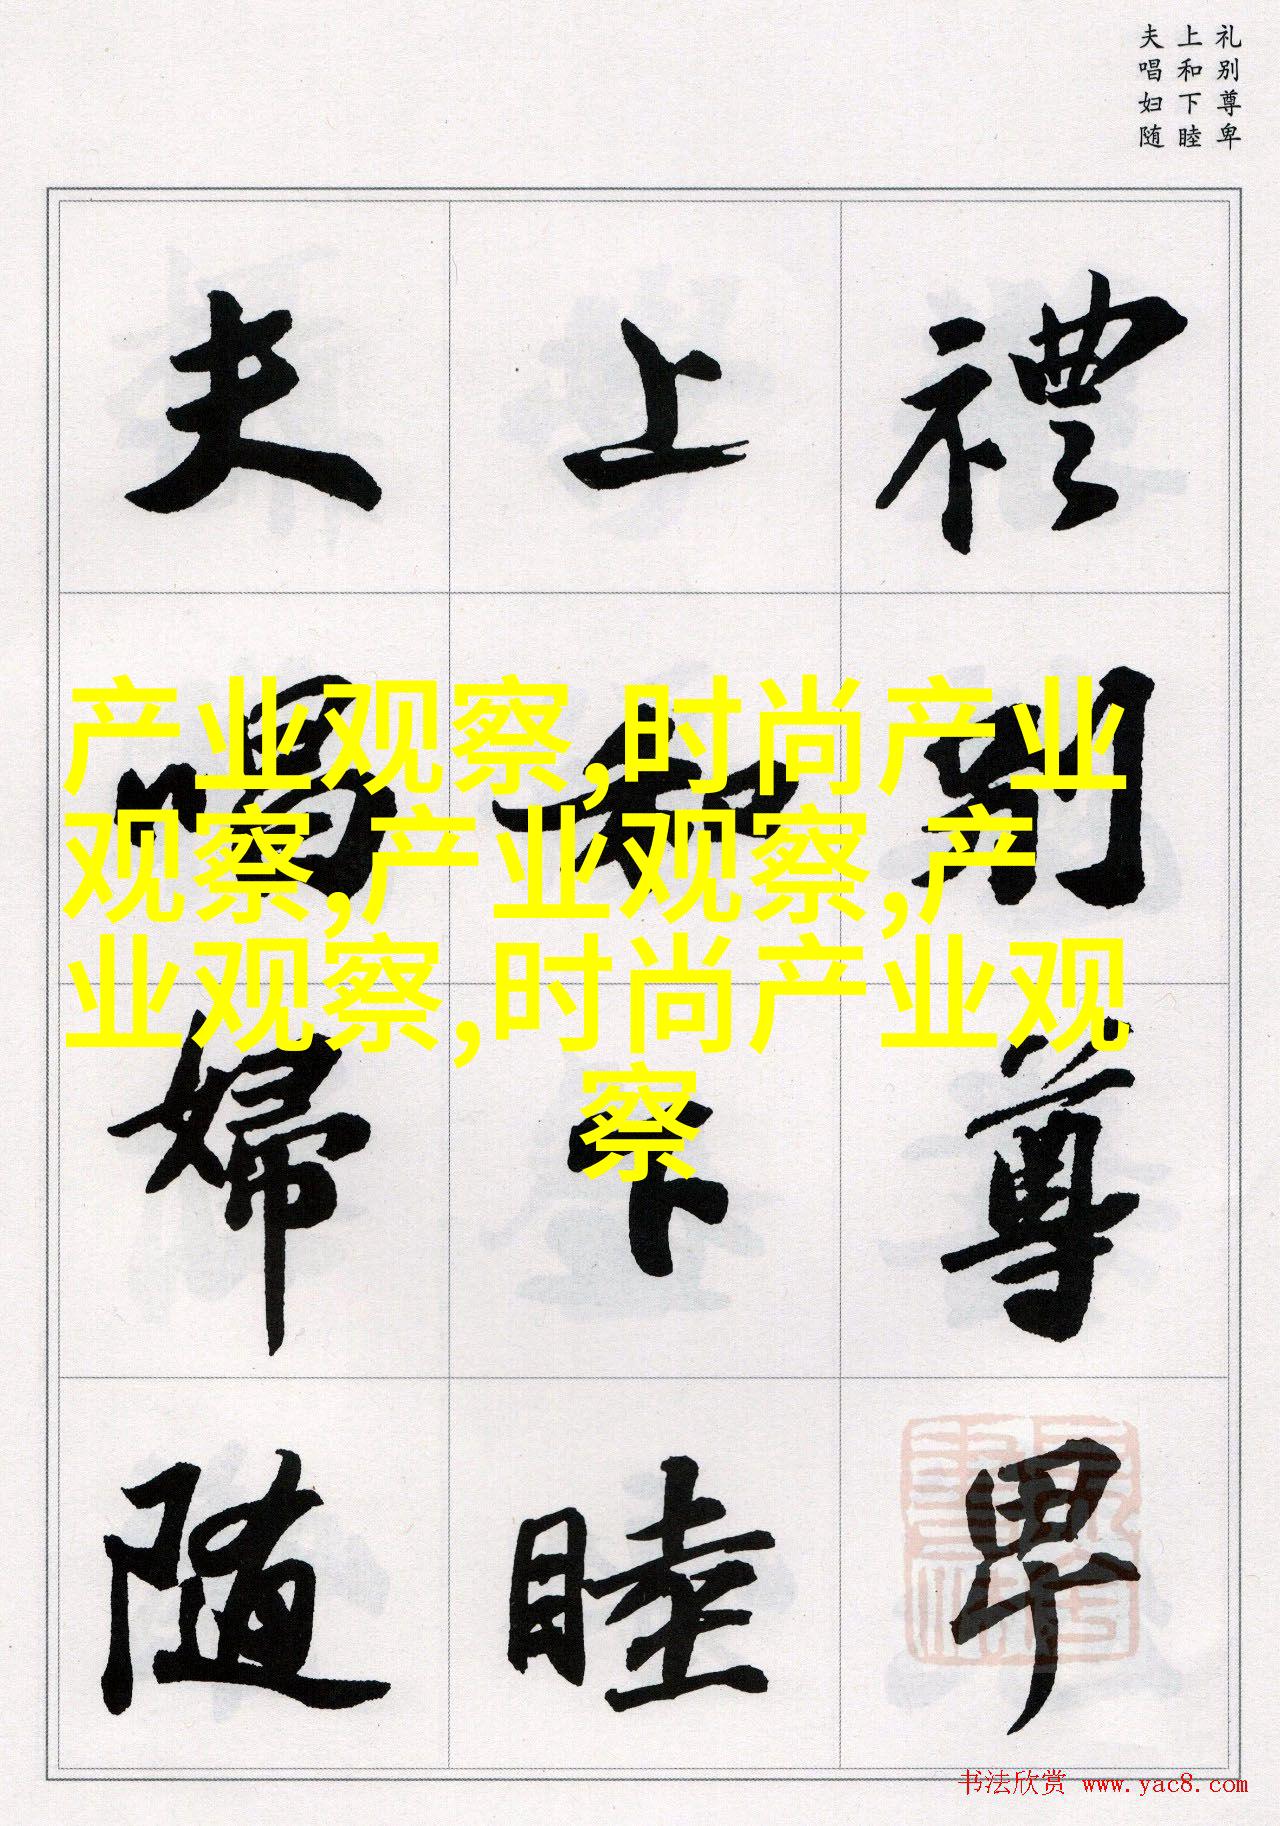 礼别尊卑
上和下睦
夫唱妇随
禮別尊卑
上和下睦
夫唱婦随
产业观察,时尚产业
观察,产业观察,产
业观察,时尚产业观
察
书法欣赏 www.yac8.com